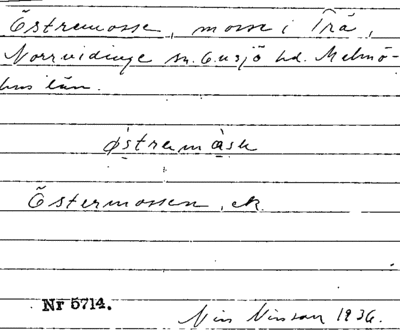 Östremosse, mosse i Trä,
Norrvidinge sn. Onsjö hd. Malmö-
hus län.
östramåsk
Östermossen, ek
Nr 5714.
Nils Nilsson 1936.